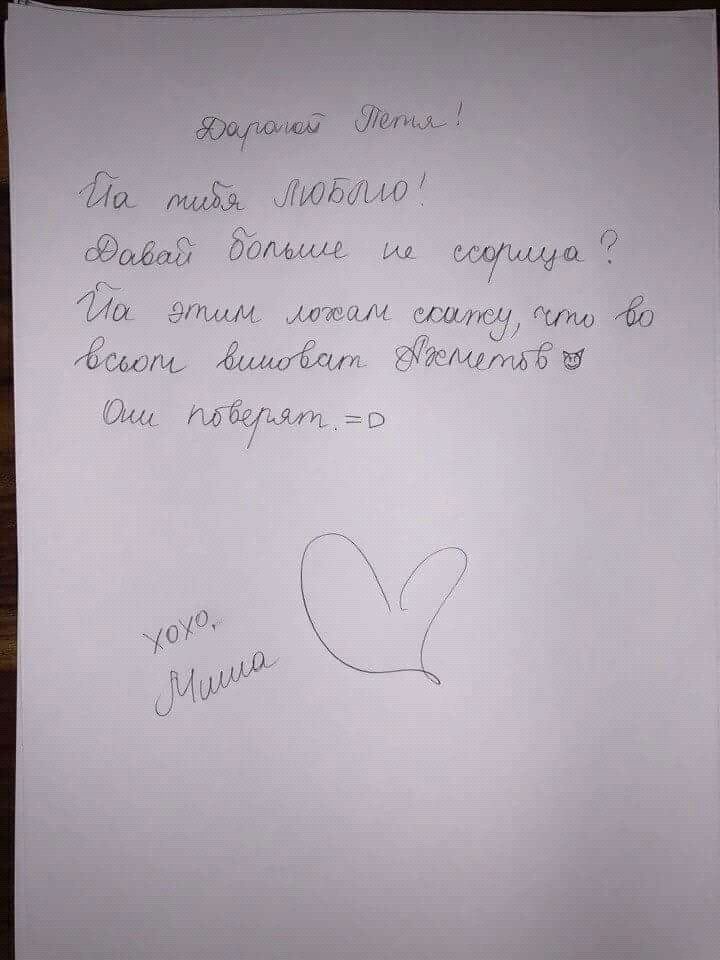 Дарагой Петя!
Йа тибя ЛЮБЛЮ!
Давай больше не ссорица?
Йа этим лохам скажу, что во
всьом виноват Ахметов 😈
Они поверят. =D
хохо,
Миша